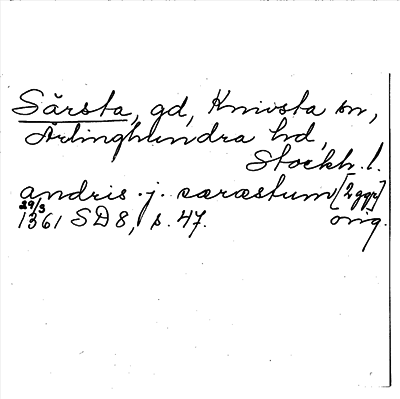 Särsta, gd, Knivsta sn,
Ärlinghundra hd,
Stockh. l.
andris. j. særæstum [2 ggr]
29/3
1361 SD 8, s. 47. orig.